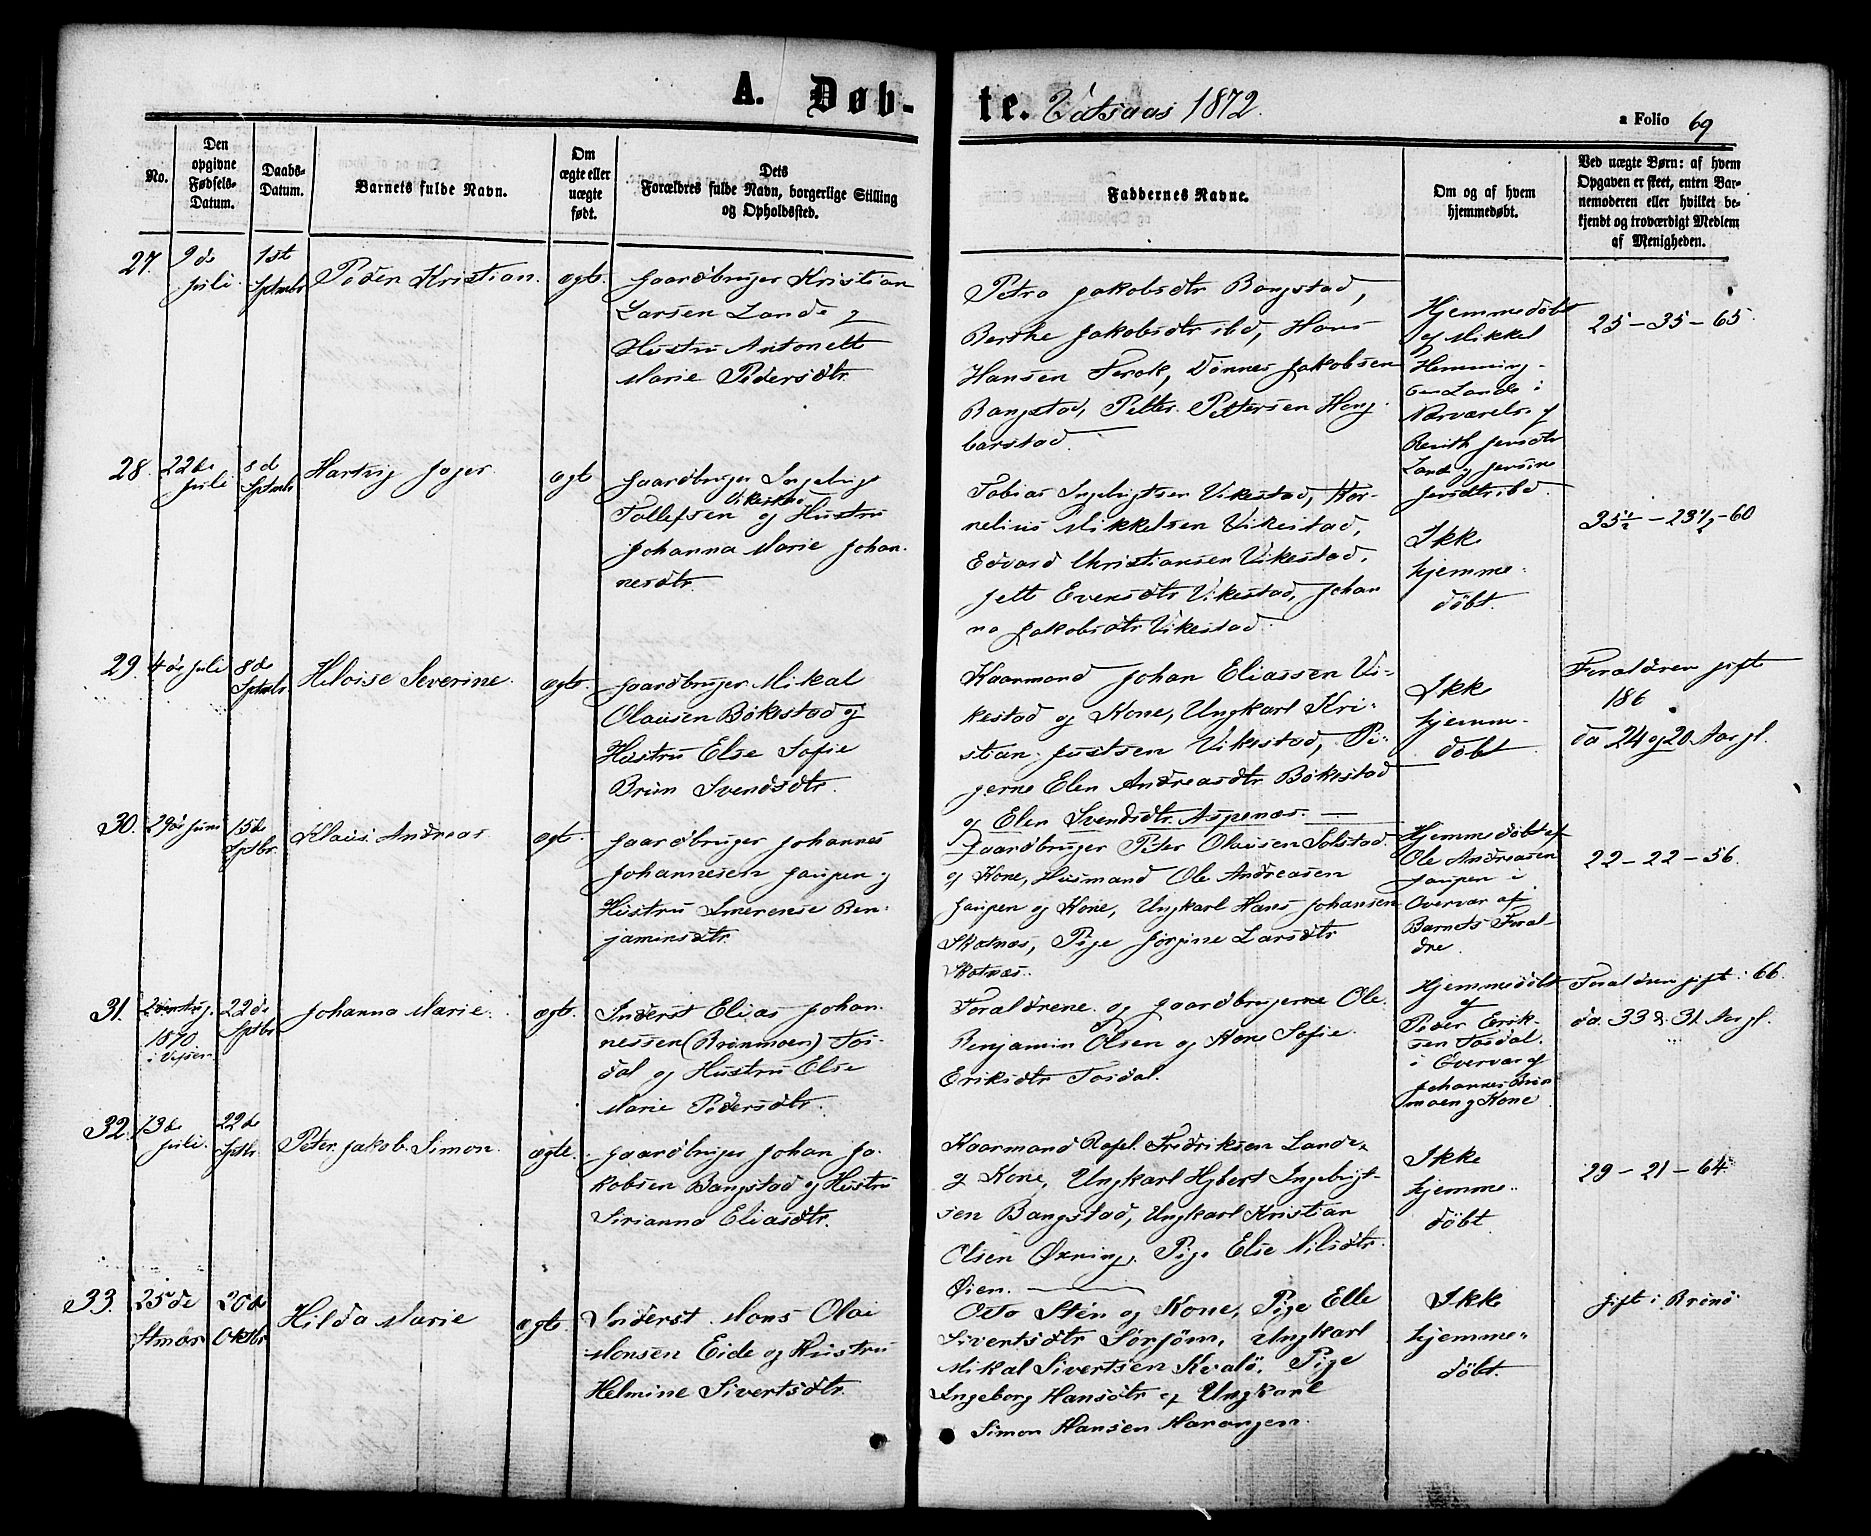 A. Døb-
te. Vatsaas 1872.
a Folio 69
No.
Den
opgivne
Fødsels-
Datum.
Daabs-
Datum.
Barnets fulde Navn.
Om
ægte eller
uægte
født.
Dets
Forældres fulde Navn, borgerlige Stilling
og Opholdssted.
Faddernes Navne.
Om og af hvem
hjemmedøbt.
Ved uægte Børn: af hvem
Opgaven er skeet, enten Bar-
nemoderen eller hvilket be-
kjendt og troværdigt Medlem
af Menigheden.
27.
9de
juli.
1st
Sptmbr
Peder Kristian.
ægte.
gaardbruger Kristian
Larsen Lande og
Hustru Antonette
Marie Pedersdtr.
Petra Jakobsdtr Bangstad,
Berthe Jakobsdtr ibd, Hans
Hansen Jakobsen
Bangstad, Petter Pettersen Hong-
barstad.
Hjemmedøbt
af Mikkel
Hemming-
sen Lande i
Nærværelse af
Berith Jensdtr
Lande og Jensine
Jensdtr ibd.
25 - 35 - 65.
28.
22de
juli
8d
Sptmbr
Hartvig Joger
ægte
gaardbruger Ingebrigt
Vikestad
Tollefsen og Hustru
Johanna Marie Johan-
nesdtr.
Tobias Ingebrigtsen Vikestad, Kor-
nelius Mikkelsen Vikestad,
Edvard Christiansen Vikestad,
Jette Evensdtr Vikestad, Johan
na Jakobsdtr Vikestad.
Ikke
hjemme-
døbt.
35½ - 23½ - 60
29.
4de juli
8de
Sptmbr
Heloise Severine.
ægte.
gaardbruger Mikal
Olausen Bökestad og
Hustru Else Sofie
Brun Svendsdtr.
Kaarmand Johan Eliassen Vi-
kestad og Kone, Ungkarl Kri-
stian Justsen Vikestad, Pi-
gerne Elen Andreasdtr Bökestad
og Elen Svendsdtr. Aspenæs.
Ikke
hjemme-
døbt
Forældren gift
186
da 24 og 20 Aar gl.
30.
29de juni
15de
Sptbr.
Klaus Andreas
ægte.
gaardbruger Johannes
Johannesen Jaupen og
Hustru Imerense Ben-
jaminsdtr.
Gaardbruger Peter Olausen Solstad
og Kone, Husmand Ole Andreasen
Jaupen og Kone, Ungkarl Hans Johansen
Skotnæs, Pige Jörgine Larsdtr
Skotnæs.
Hjemmedöbt af
Ole Andreasen
Jaupen i
Overvær af
Barnets Foræl-
dre.
22 - 22 - 56.
31.
1870
i Vefsen
22de
Sptbr
Johanna Marie.
ægte.
Inderst Elias Johan-
nessen (Brönmoen) Tos-
dal og Hustru Else
Marie Pedersdtr.
Forældrene og gaardbrugerne Ole
Benjamin Olsen og Kone Sofie
Eriksdtr Tosdal.
Hjemmedöbt
af
Peder Erik-
sen Tosdal.
i Overvær af
Johannes Brön
moen og Kone
Forældren gift: 66
da. 33 & 31 Aar gl.
32.
13de
juli.
22de
Sptbr.
Peter Jakob Simon.
ægte.
gaardbruger Johan Ja-
kobsen Bangstad og Hustru
Sirianna Eliasdtr.
Kaarmand Rafel Fredriksen Lande
og Kone, Ungkarl Hybert Ingebrigt-
sen Bangstad, Ungkarl Kristian
Olsen Öxning, Pige Else Nilsdtr.
Øien.
Ikke
hjemme-
døbt
29 - 21 - 64.
33.
25de
20de
Oktbr.
Hilda Marie
ægte.
Inderst Mons Olai
Monsen Eide og Hustru
Helmine Sivertsdtr.
Otto Sten og Kone, Pige Elle
Sivertsdtr Sörjöm, Ungkarl
Mikal Sivertsen Kvalö, Pige
Ingeborg Hansdtr og Ungkarl
Simon Hansen Harangen.
Ikke
hjemme-
døbt.
gift i Brönö